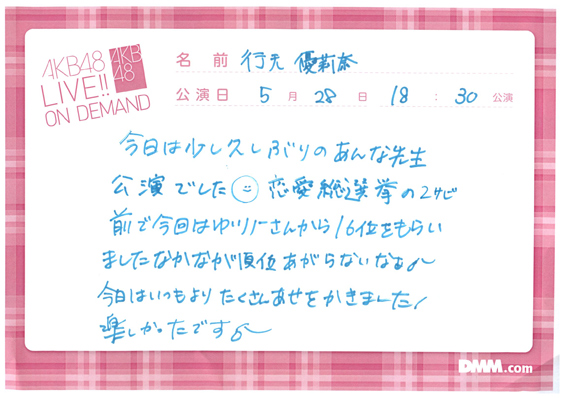 AKB48
LIVE!!
ON DEMAND
AKB
48
名前 行天 優莉奈
公演日 5月28日 18:30公演
今日は少し久しぶりのあんな先生
公演でした 恋愛総選挙の2サビ
前で今回はゆいりーさんから16位をもらい
ましたなかなか順位あがらないなぁ〜
今日はいつもよりたくさんあせをかきました!
楽しかったです
DMM.com